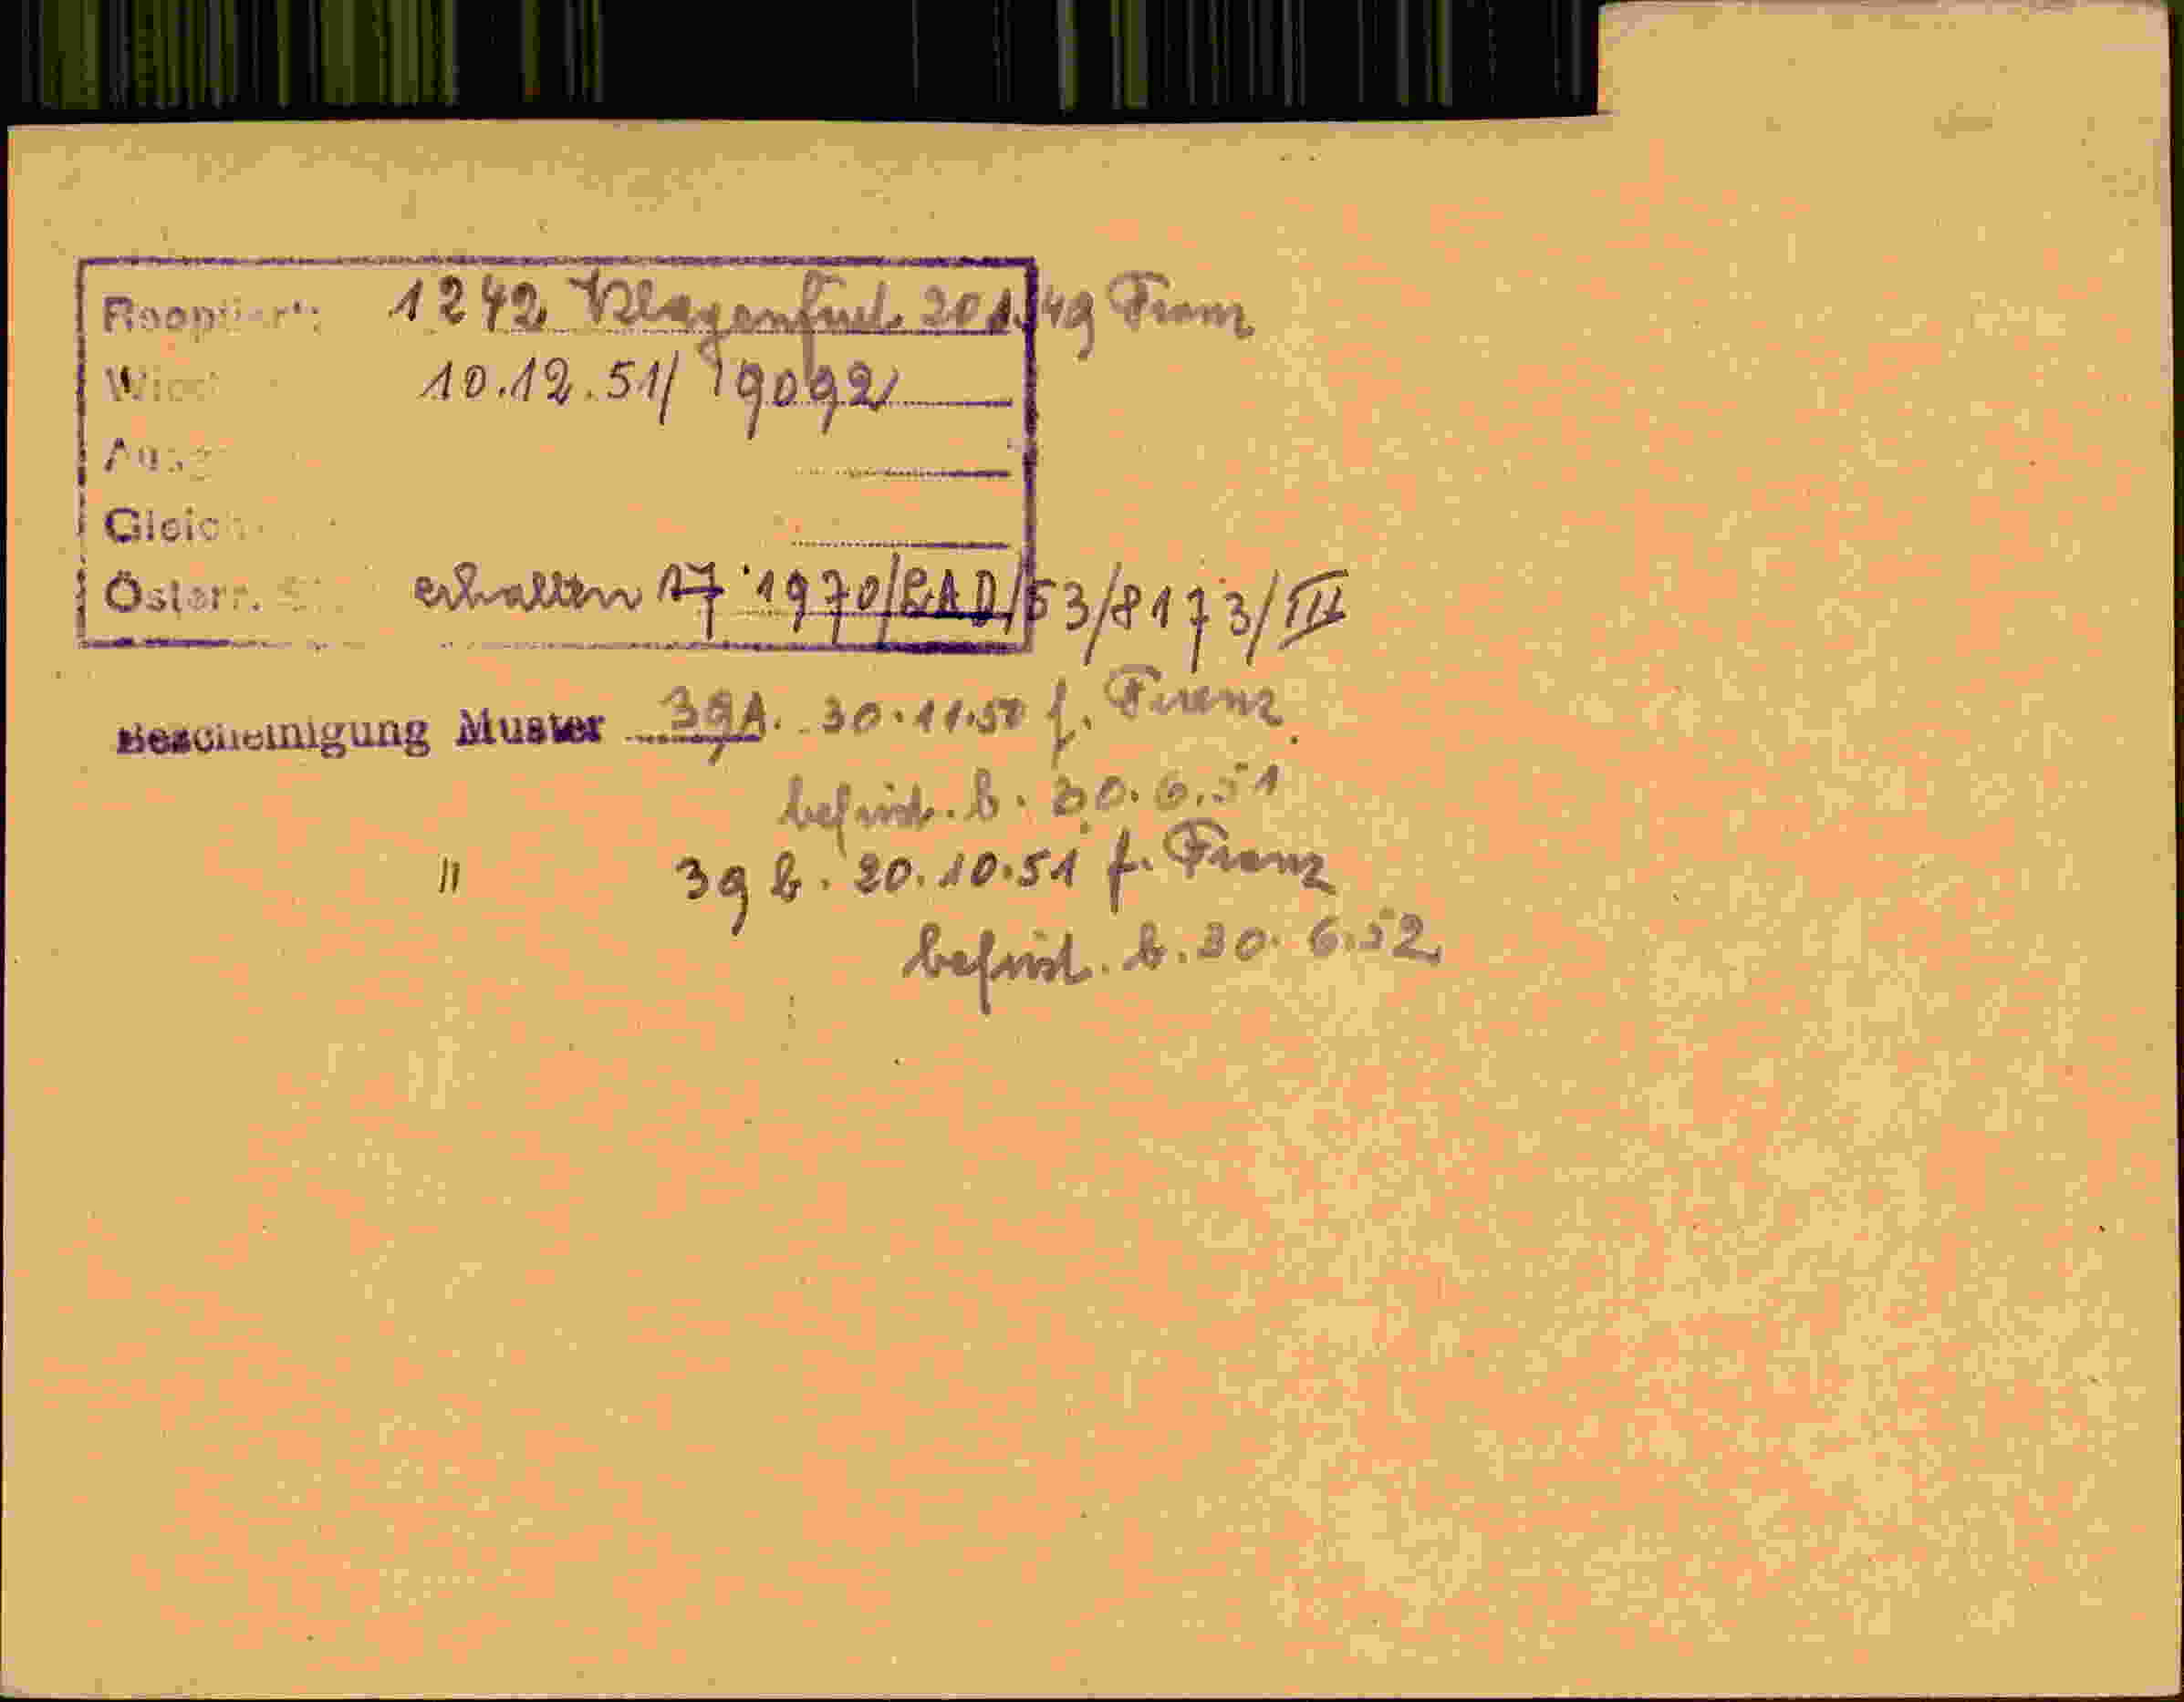 Rooptiert: 1242 Klagenfurt 20.1.49 Franz
10.12.51/ 19092
Gleich
Österr. erhalten 17 1970/RAD/53/8173/III
Bescheinigung Muster 39A. 30.11.50 f. Franz
befrist. b. 30.6.51
" 39 b. 20.10.51 f. Franz
befrist. b. 30.6.52